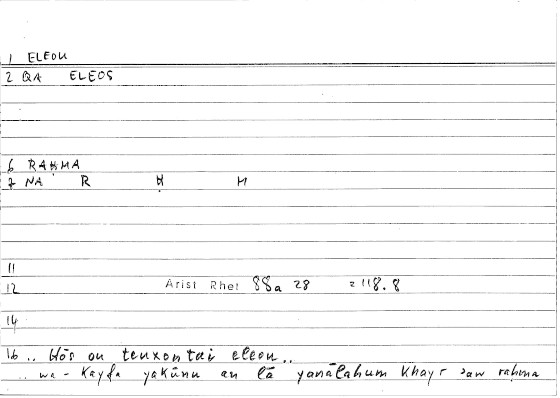 1 ELEOU
2 QA ELEOS
6 RAḤMA
7 NA R Ḥ M
11
12 Arist Rhet 88a 28 = 118.8
14
16 .. Hōs ou teuxontai eleou..
.. wa-kayfa yakūnu an lā yanālahum khayr aw raḥma